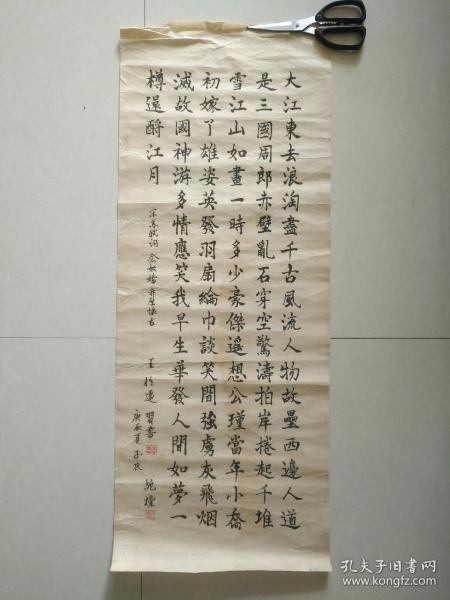 大江東去浪淘盡千古風流人物故壘西邊人道
是三國周郎赤壁亂石穿空驚濤拍岸捲起千堆
雪江山如畫一時多少豪傑遥想公瑾當年小喬
初嫁了雄姿英發羽扇綸巾談笑間強虜灰飛烟
滅故國神游多情應笑我早生華發人間如夢一
樽還酹江月
宋苏轼词 念奴娇 赤壁怀古
習書
孔夫子旧书网
www.kongfz.com